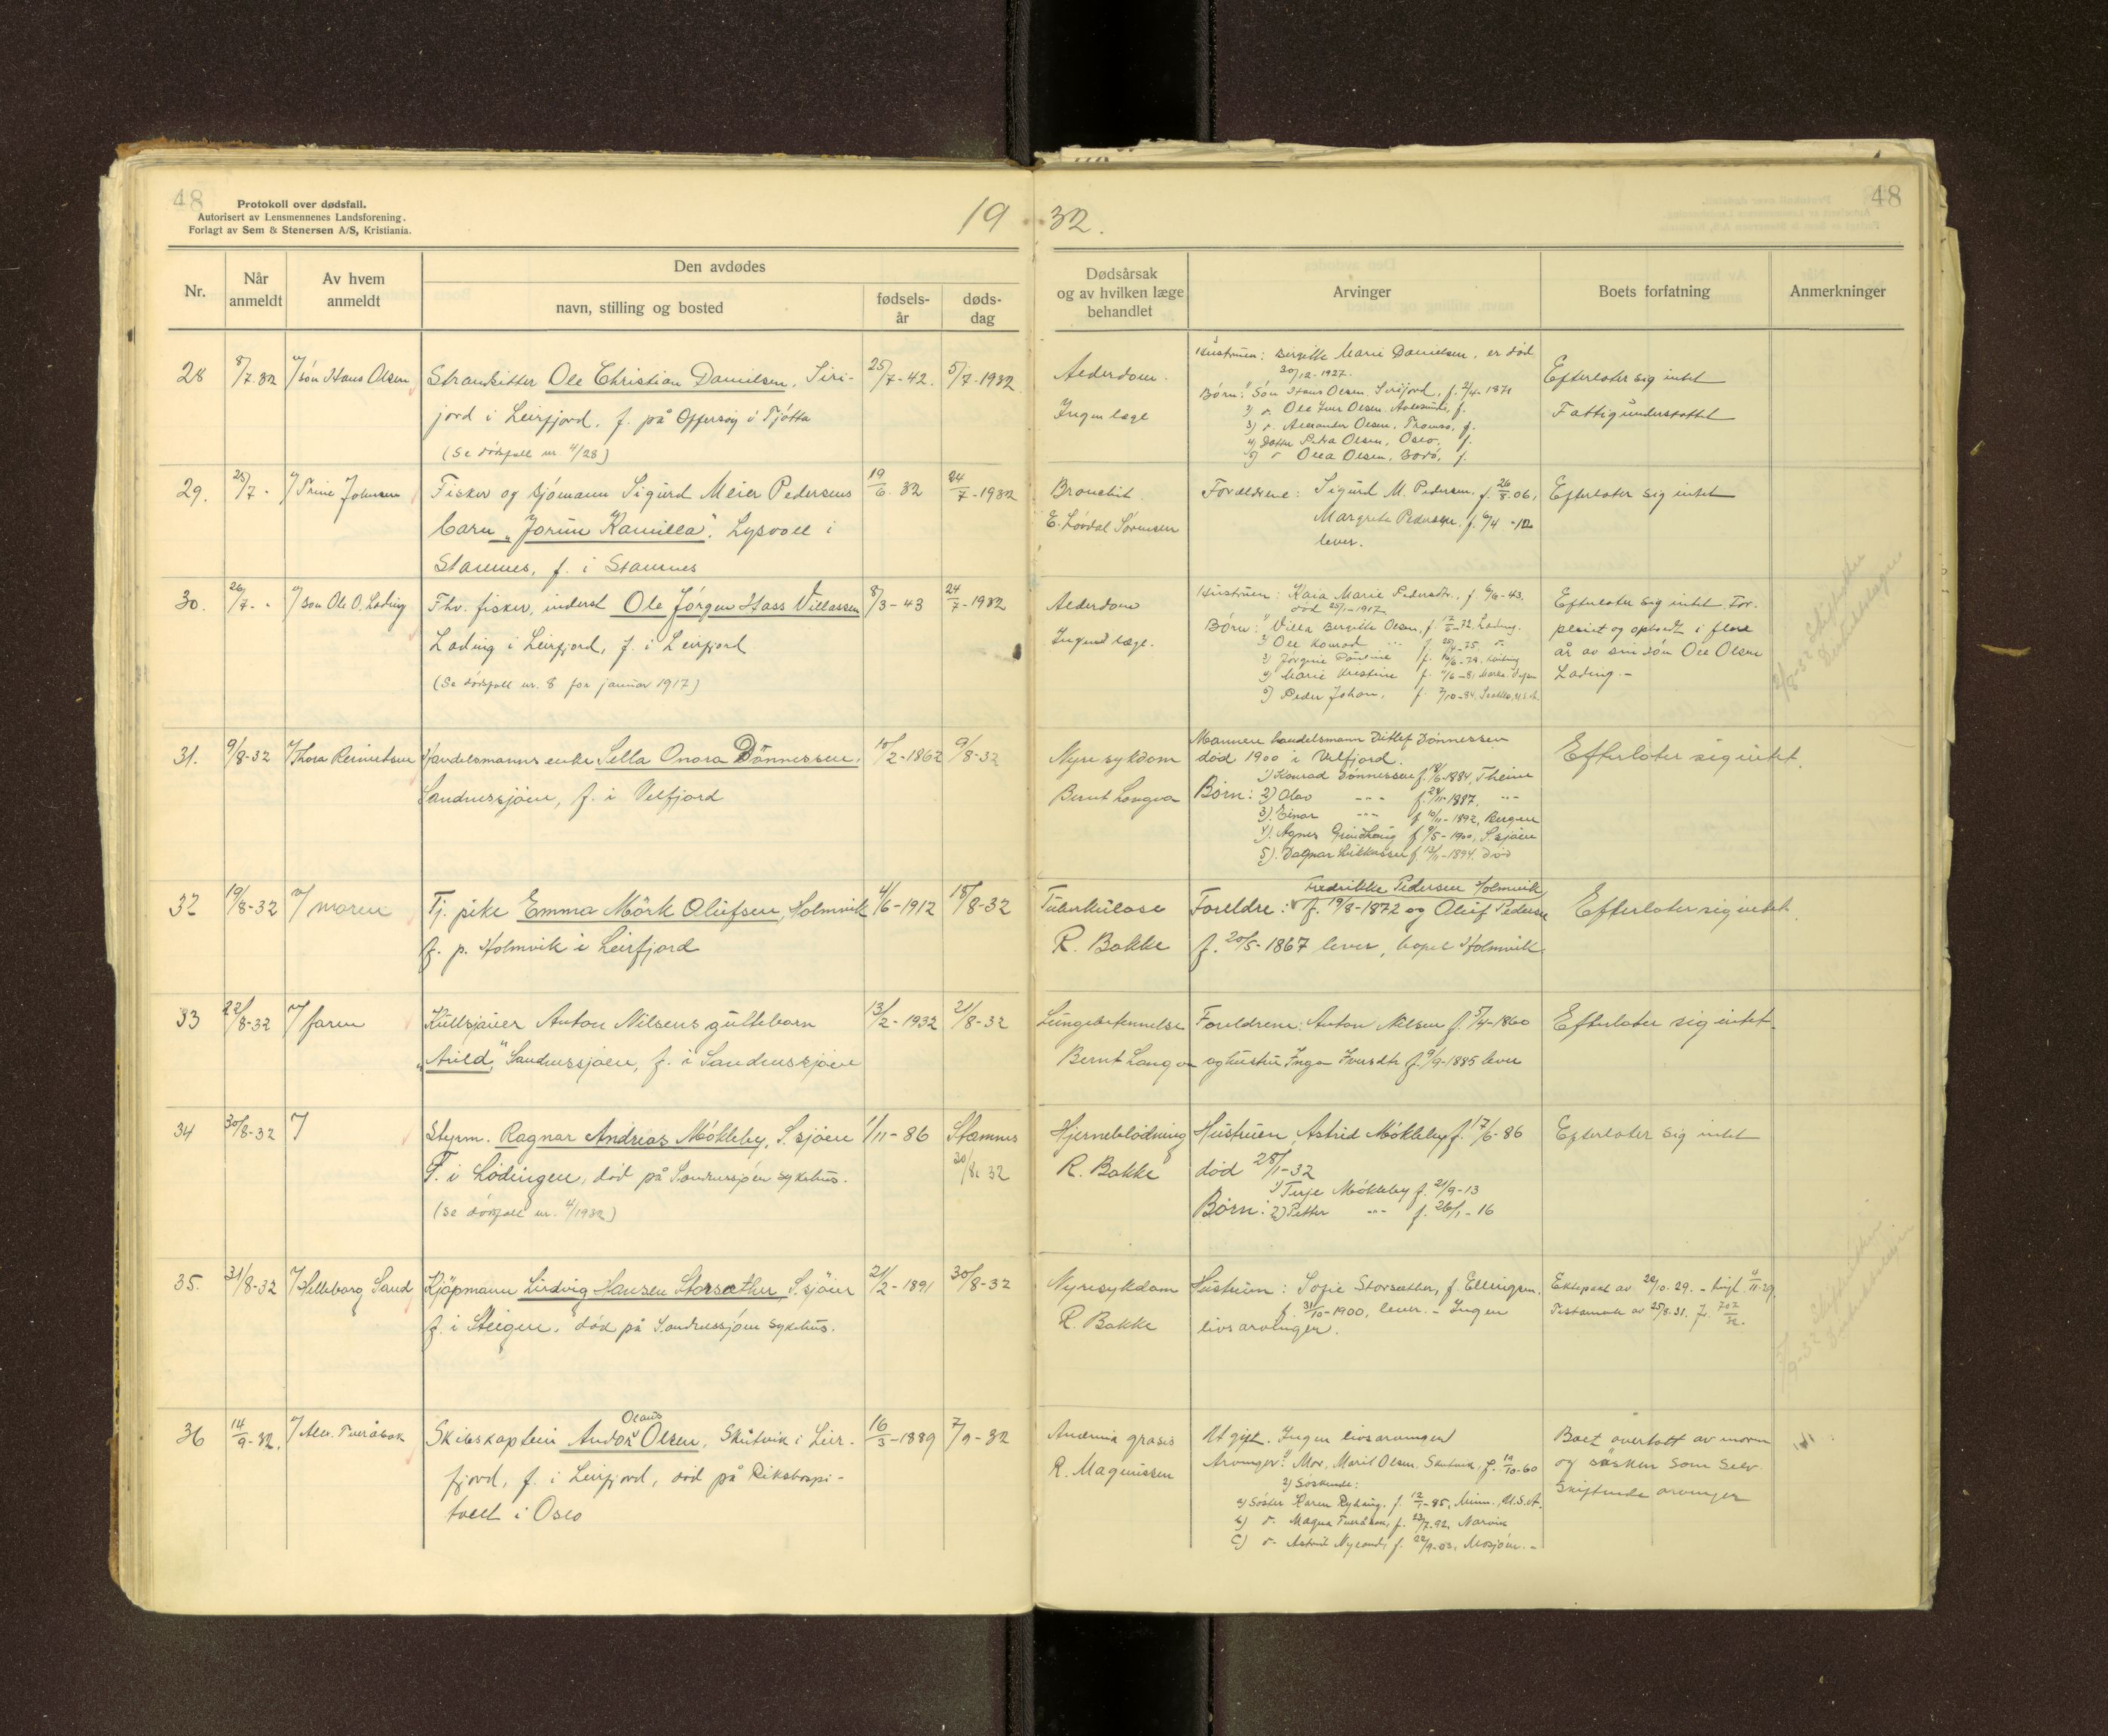 48
Protokoll over dødsfall.
Autorisert av Lensmennenes Landsforening.
Forlagt av Sem & Stenersen A/S, Kristiania.
19 32.
48
Nr.
Når anmeldt
Av hvem anmeldt
Den avdødes
navn, stilling og bosted
fødsels-år
døds-dag
Dødsårsak og av hvilken læge behandlet
Arvinger
Boets forfatning
Anmerkninger
28 8/7-32 v/ søn Hans Olsen
Strandsitter Ole Christian Danielsen, Siri-
jord i Leirfjord, f. på Offersøy i Tjøtta
(Se dødsfall nr. 4/28)
25/7-42. 5/7-1932
Alderdom.
Ingen læge
Hustruen: Birgitte Marie Danielsen, er død
30/12-1927.
Børn: 1) Søn Hans Olsen, Sirijord, f. 2/4-1871
2) d. Ole Olsen, f.
3) d. Alexander Olsen, Tromsø, f.
4) Datter Petra Olsen, Oslo, f.
5) d Olea Olsen, Bodø, f.
Efterlater sig intet
Fattigunderstøttet
29. 25/7 - v/ Trine Johnsen
Fisker og sjømann Sigurd Meier Pedersens
barn "Jorun Kamilla". Lysvoll i
Stamnes, f. i Stamnes
19/6. 32 24/7-1932
Bronchit.
E. Lövdal Sørensen
Forældrene: Sigurd M. Pedersen, f. 26/8.06,
Margrete Pedersen, f. 6/4-12
lever.
Efterlater sig intet
30. 26/7 - - v/ søn Ole O. Lading
Fhv. fisker, inderst Ole Jörgen Hass Villassen
Lading i Leirfjord, f. i Leirfjord
(Se dødsfall nr. 8 for januar 1917)
8/3-43 24/7-1932
Alderdom
Ingen læge.
Hustruen: Kaia Marie Pedersdtr., f. 6/6-43.
død 25/1-1917
Børn: 1) Villa Bergitte Olsen, f. Lading.
2) Ole Konrad f. -75
3) Jörgine f. 10/6-79
4) Marie Kristine f. 1/6-81
5) Peder Johan, f. 7/10-84, Seattle, U.S.A.
Efterlater sig intet. For-
pleiet og opholdt i flere
år av sin søn Ole Olsen
Lading. -
31. 9/8-32 v/ Thora Reinertsen
Handelsmanns enke Sella Onora Dönnessen,
Sandnessjøen, f. i Velfjord
10/2-1862 9/8-32
Nyresykdom
Bernt Langva
Mannen handelsmann Ditlef Dönnessen
død 1900 i Velfjord.
Børn: 1) Konrad Dönnessen f. 18/6-1884, Theim
2) Olav --- f. 24/11-1887. ---
3). Einar --- f. 10/11-1892, Bergen
4). Agnes Grindhaug f. 9/5-1900, S.sjøen
5). Dagmar f. 13/11-1894. Død
Efterlater sig intet.
32 19/8-32 v/ moren
Tj. pike Emma Mörk Olufsen, Holmvik
f. p. Holmvik i Leirfjord
4/6-1912 18/8-32
Tuberkulose
R. Bakke
Fredrikke Pedersen Holmvik
Foreldre: f. 19/8-1872 og Oluf Pedersen
f. 20/5-1867 lever, bopel Holmvik.
Efterlater sig intet.
33 22/8-32 v/ faren
Kullsjauer Anton Nilsens guttebarn
"Arild," Sandnessjøen, f. i Sandnessjøen
13/2-1932 21/8-32
Lungebetennelse
Bernt Langva
Foreldrene: Anton Nilsen f. 5/4-1860
og hustru Inga Iversdtr f. 9/9-1885 lever
Efterlater sig intet.
34 30/8-32 v/
Styrm. Ragnar Andreas Mökleby, S.sjöen
F. i Lödingen, död på Sandnessjøen sykehus.
(Se dødsfall nr. 4/1932)
1/11-86 Stamnes
30/8. 32
Hjerneblödning
R. Bakke
Hustruen, Astrid Mökleby f. 17/6-86
død 28/1-32
Børn: 1) Terje Mökleby f. 21/9-13
2) Petter --- f. 26/1-16
Efterlater sig intet
35. 31/8-32 v/ Helleborg Sand
Kjøpmann Ludvig Hansen Storsæther, S.sjöen
f. i Steigen, død på Sandnessjøen sykehus.
21/2-1891 30/8-32
Nyresykdom
R. Bakke
Hustruen: Sofie Storsæther, f. Ellingsen,
f. 31/10-1900, lever. - Ingen
livsarvinger.
Ektepakt av 22/10.29. - tingl. 4/11-29.
Testamente av 25/8.31.
36 14/9-32. v/ Alev. Tveråbak
Olaus
Skibskaptein Andor Olsen, Skutvik i Leir-
fjord, f. i Leirfjord, død på Rikshospi-
talet i Oslo
16/3-1889 7/9-32
Anæmia gravis
R. Magnussen
Ugift. Ingen livsarvinger
Arvinger: 1) Mor, Marit Olsen, Skutvik, f. 10/10-60
2) Søskende:
a) Søster Karen Ryking, f. 12/1-85, Minn., U.S.A.
b) d- Magna Tveråbak, f. 23/7.92, Narvik
c) d- Astrid Nyland, f. 22/9-03, Mosjøen. -
Boet overtatt av moren
og søsken som selv-
skiftende arvinger